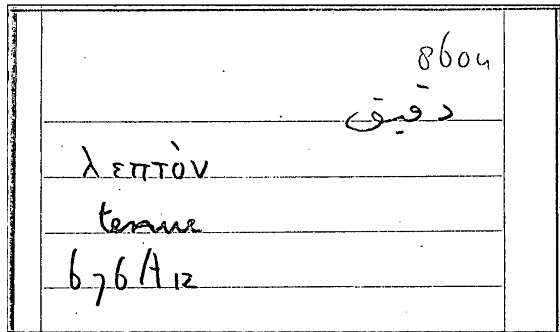 8604
دقيق
λεπτὸν
tenue
676A12